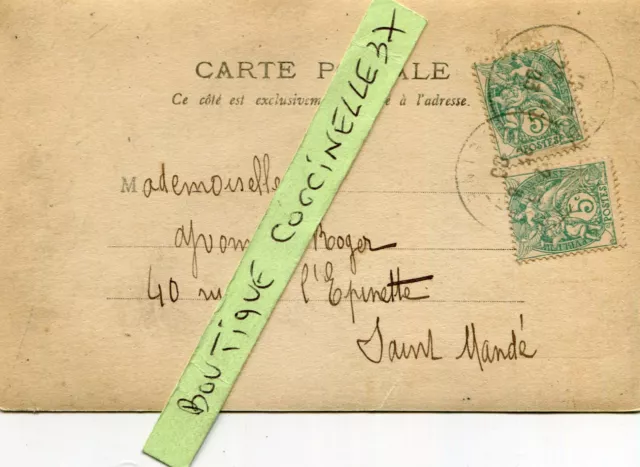 CARTE POSTALE
Ce côté est exclusivement à l'adresse.
Mademoiselle
Yvonne Roger
40 rue l'Epinette
Saint Mandé
BOUTIQUE COCCINELLE37
5
POSTES
5
POSTES